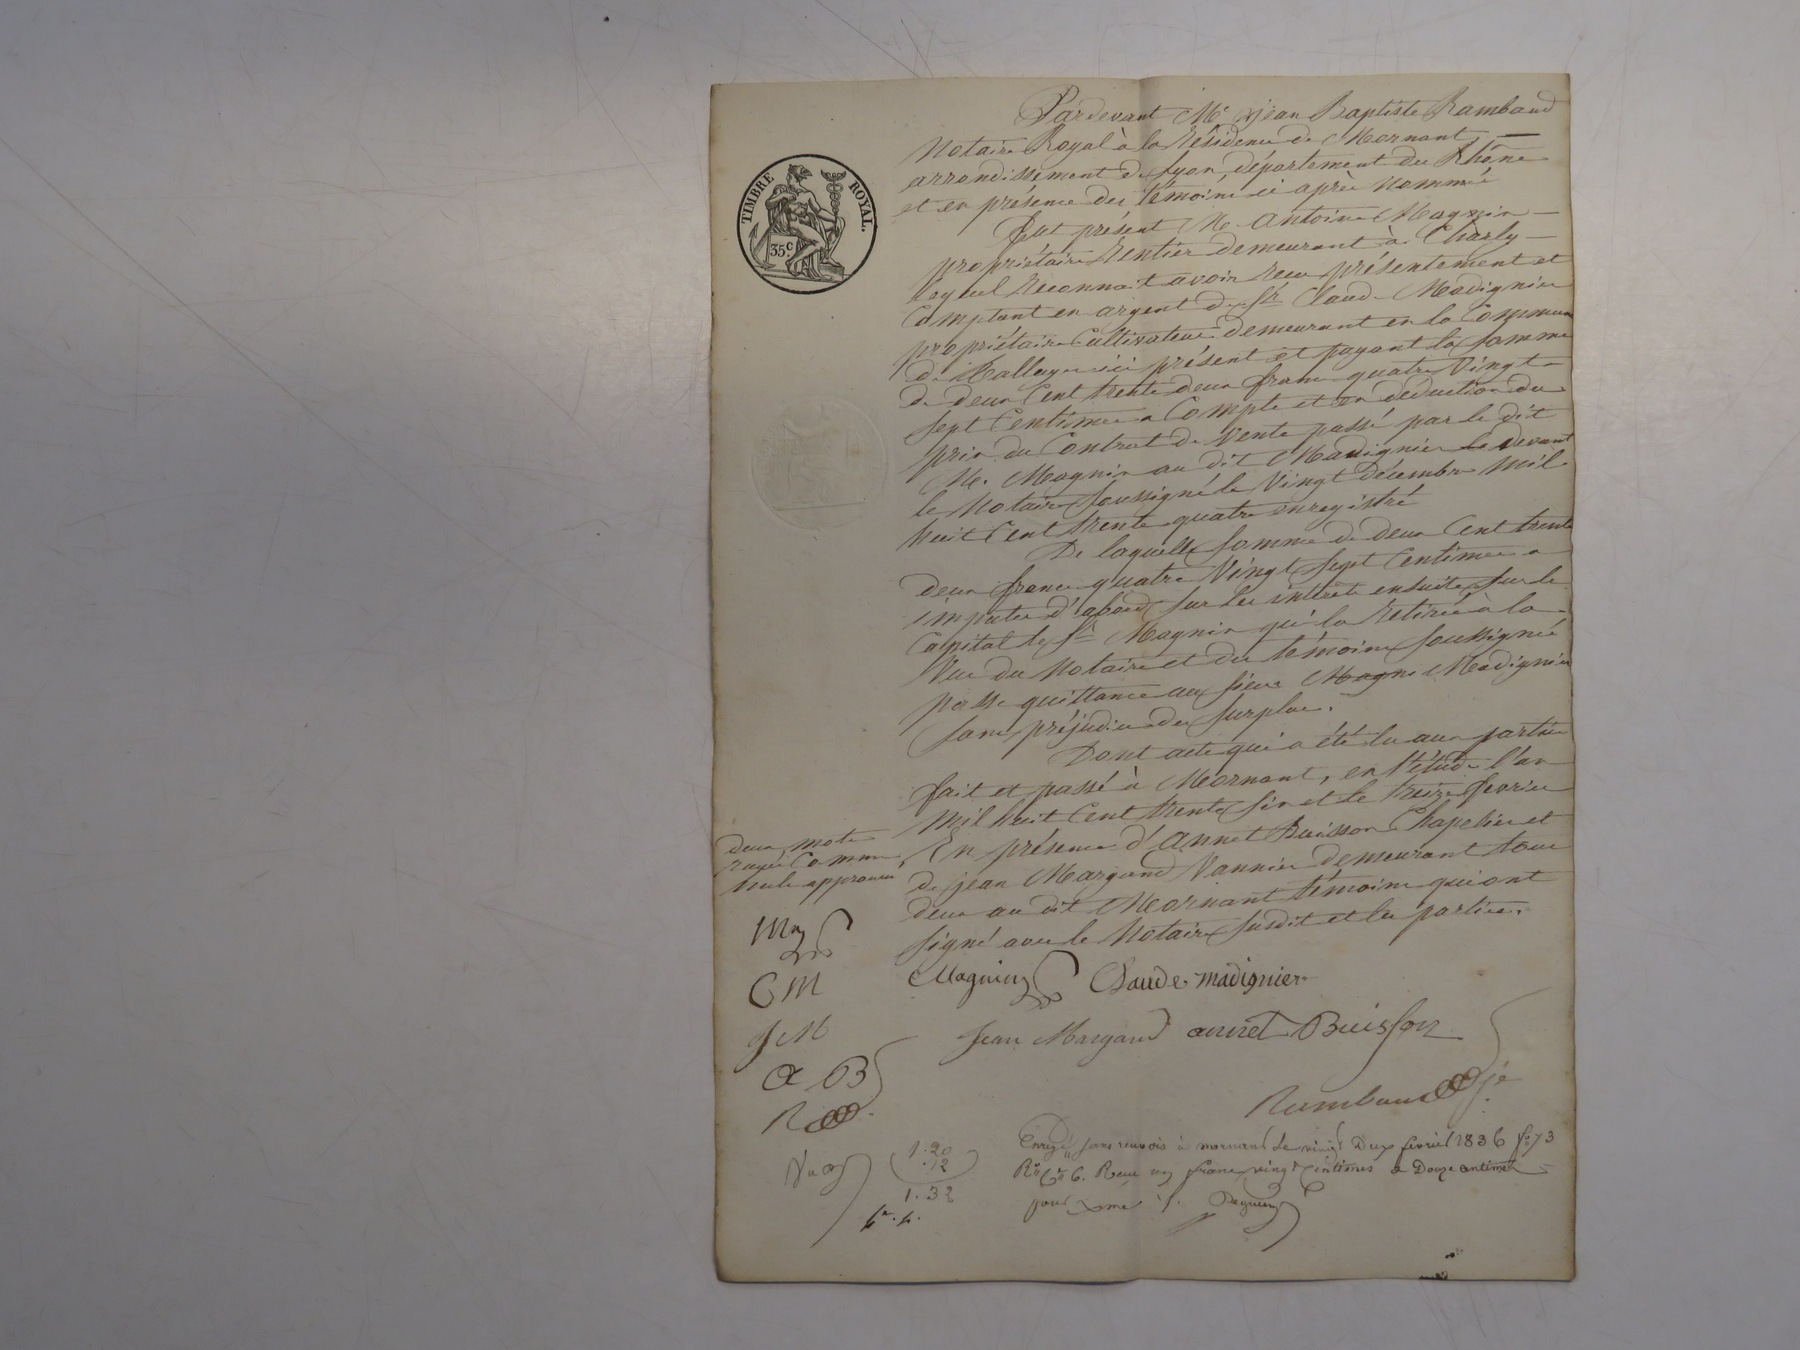 TIMBRE ROYAL.
35.C
Pardevant Me. jean Baptiste Rambaud
Notaire Royal à la résidence de Mornant,
arrondissement de Lyon, département du Rhône
et en présence des témoins ci après nommés
fut présent M. Antoine Magnin
propriétaire Rentier demeurant à Charly
lequel reconnait avoir recu présentement et
Comptant en argent de Sr. Claude Madignier
propriétaire Cultivateur demeurant en la Commune
de ici présent et payant la somme
de deux Cent trente deux francs quatre Vingt
sept Centimes a Compte et en déduction du
prix du Contrat de Vente passé par le dit
M. Magnin au dit Madignier le devant
le Notaire soussigné le Vingt décembre Mil
huit Cent trente quatre enregistré
De laquelle somme de deux Cent trente
deux francs quatre Vingt sept Centimes a
imputer d'abord sur les intérêts ensuite sur le
Capital le Sr. Magnin qui la retirée à la
Vue du Notaire et des témoins soussignés
passe quittance au sieur Magni Madignier
sans préjudice du surplus.
Dont acte qui a été lu aux parties
fait et passé à Mornant, en l'étude l'an
Mil huit Cent trente six et le treize fevrier
En présence d'Annet Buisson Chapelier et
de jean Margand Vannier demeurant tous
deux au dit Mornant témoins qui ont
signé avec le Notaire susdit et les parties.
deux mots
rayés Comme
nuls approuvés
Mag
CM
JM
a B
R
Magnin Claude madignier
Jean Margand annet Buisson
Rambaud
Enregé. sans renvois à mornant le vingt Deux fevrier 1836 fo. 73
Ro. Ce. 6. Recu un franc vingt Centimes & Douze centimes
pour Xme
1.20
.12
1.32